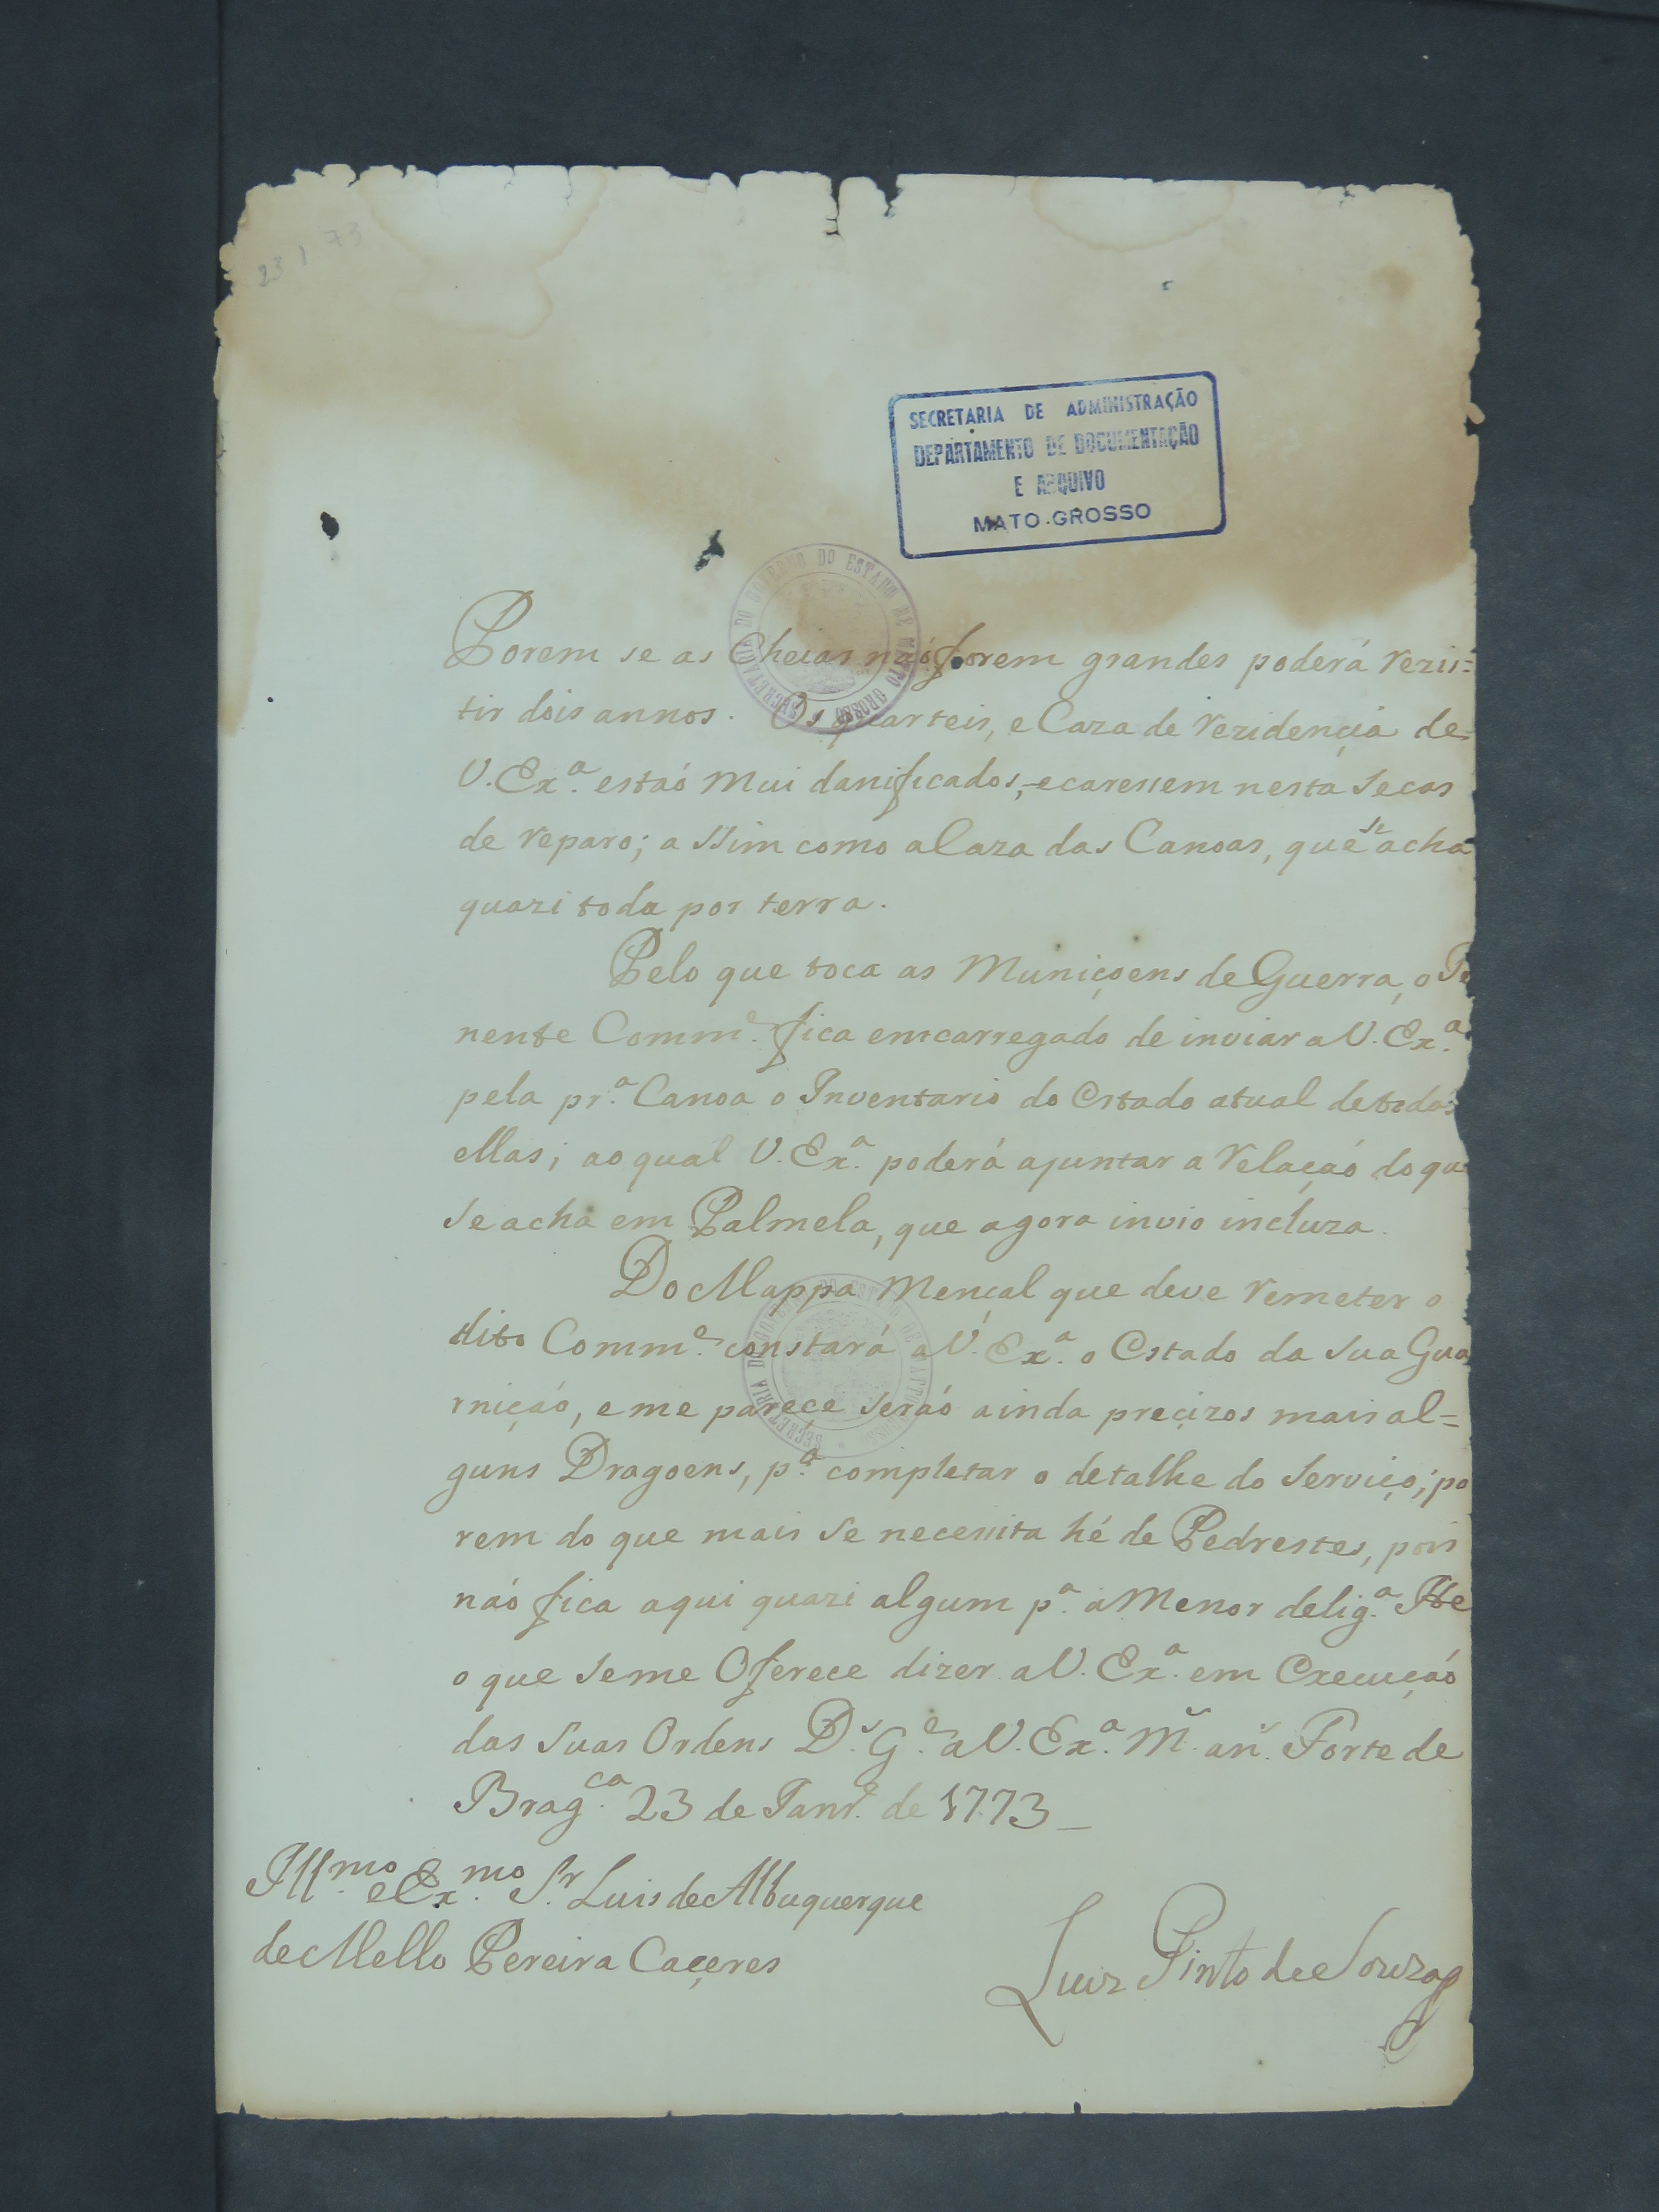 23 1 73
SECRETARIA DE ADMINISTRAÇÃO
DEPARTAMENTO DE DOCUMENTAÇÃO
E ARQUIVO
MATO GROSSO
SECRETARIA DO GOVERNO DO ESTADO DE MATTO GROSSO
Porem se as Cheias naó forem grandes poderá rezis=
tir dois annos. Os quarteis, e Caza de rezidençia de
V. Ex.ª estaó mui danificados, e caressem nesta Secas
de reparo; a ssim como a Caza das Canoas, que se acha
quazi toda por terra.
Pelo que toca as Muniçoens de Guerra, o Te
nente Comm.e fica emcarregado de inviar a V. Ex.ª
pela pr.ª Canoa o Inventario do Estado atual de todas
ellas; ao qual V. Ex.ª poderá ajuntar a relaçaó do que
Se acha em Palmela, que agora invio incluza.
Do Mappa Mençal que deve remeter o
dito Comm.e constará a V. Ex.ª o Estado da Sua Gua
rniçaó, e me pareçe Seraó ainda preçizos mais al=
guns Dragoens, p.ª completar o detalhe do Serviço; po
rem do que mais Se necessita hé de Pedrestes, pois
naó fica aqui quazi algum p.ª a Menor delig.ª He
o que Se me Oferece dizer a V. Ex.ª em Execuçaó
das Suas Ordens D.s G.e a V. Ex.ª M.s an.s Forte de
Brag.ça 23 de Janr.o de 1773
Ill.mo e Ex.mo S.r Luis de Albuquerque
de Mello Pereira Caçeres
Luiz Pinto de Souza
SECRETARIA DO GOVERNO DO ESTADO DE MATTO GROSSO